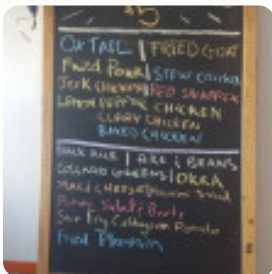 $5
OXTAIL | FRIED GOAT
Fried Pork | STEW CHICKEN
Jerk Chicken | RED SNAPPER
LEMON PEPPER CHICKEN
CURRY CHICKEN
BAKED CHICKEN
RICE | BEANS
COLLARD GREENS | OKRA
MAC & CHEESE |
Salad | Beets
Stir Fry
Fried Plantain